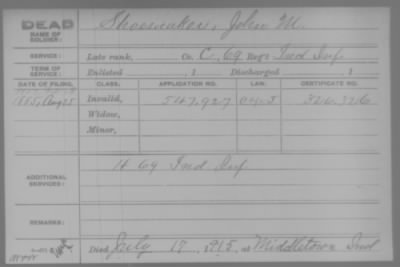 DEAD
NAME OF SOLDIER:
Shoemaker, John M.
SERVICE:
Late rank, Co. C, 69 Reg't Ind Inf
TERM OF SERVICE:
Enlisted , 1 Discharged , 1
DATE OF FILING. CLASS. APPLICATION NO. LAW. CERTIFICATE NO.
1885, Aug 25 Invalid, 547.927
Widow,
Minor,
ADDITIONAL SERVICES:
H 69 Ind Inf
REMARKS:
Died July 17, 1915, at Middletown Ind